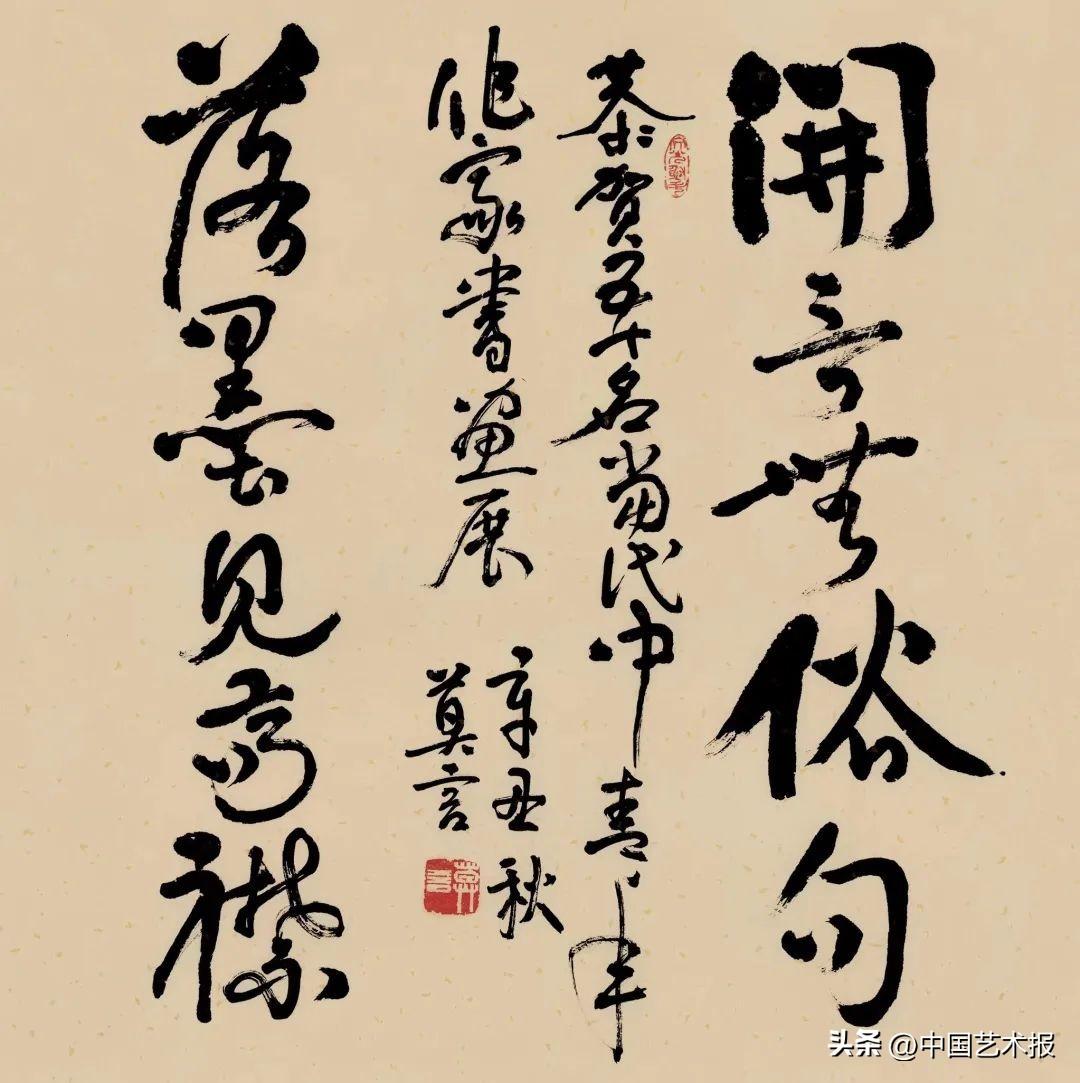 開言無俗句
恭賀五十名當代中青年
作家書畫展
辛丑秋
莫言
莫言
落墨見高襟
头条 @中国艺术报